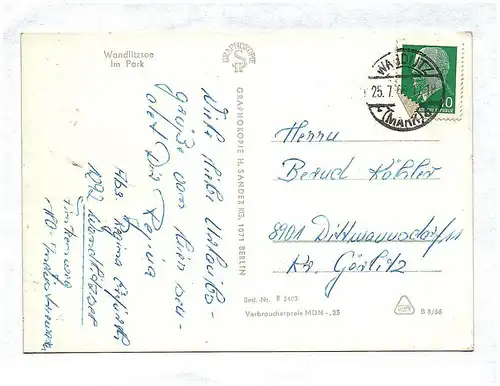 Wandlitzsee
Im Park
GRAPHOKOPIE
GRAPHOKOPIE H. SANDER KG, 1071 BERLIN
Viele liebe Urlaubs-
grüße von hier sen-
det Dir Regina
Abs. Regina
1292 Wandlitzsee
WANDLITZ
25.7.
(MARK)
10
Herrn
Bernd Köhler
8901 Dittmannsdorf
Kr. Görlitz
Best.-Nr. B 2403
Verbraucherpreis MDN -,25
B 8/66